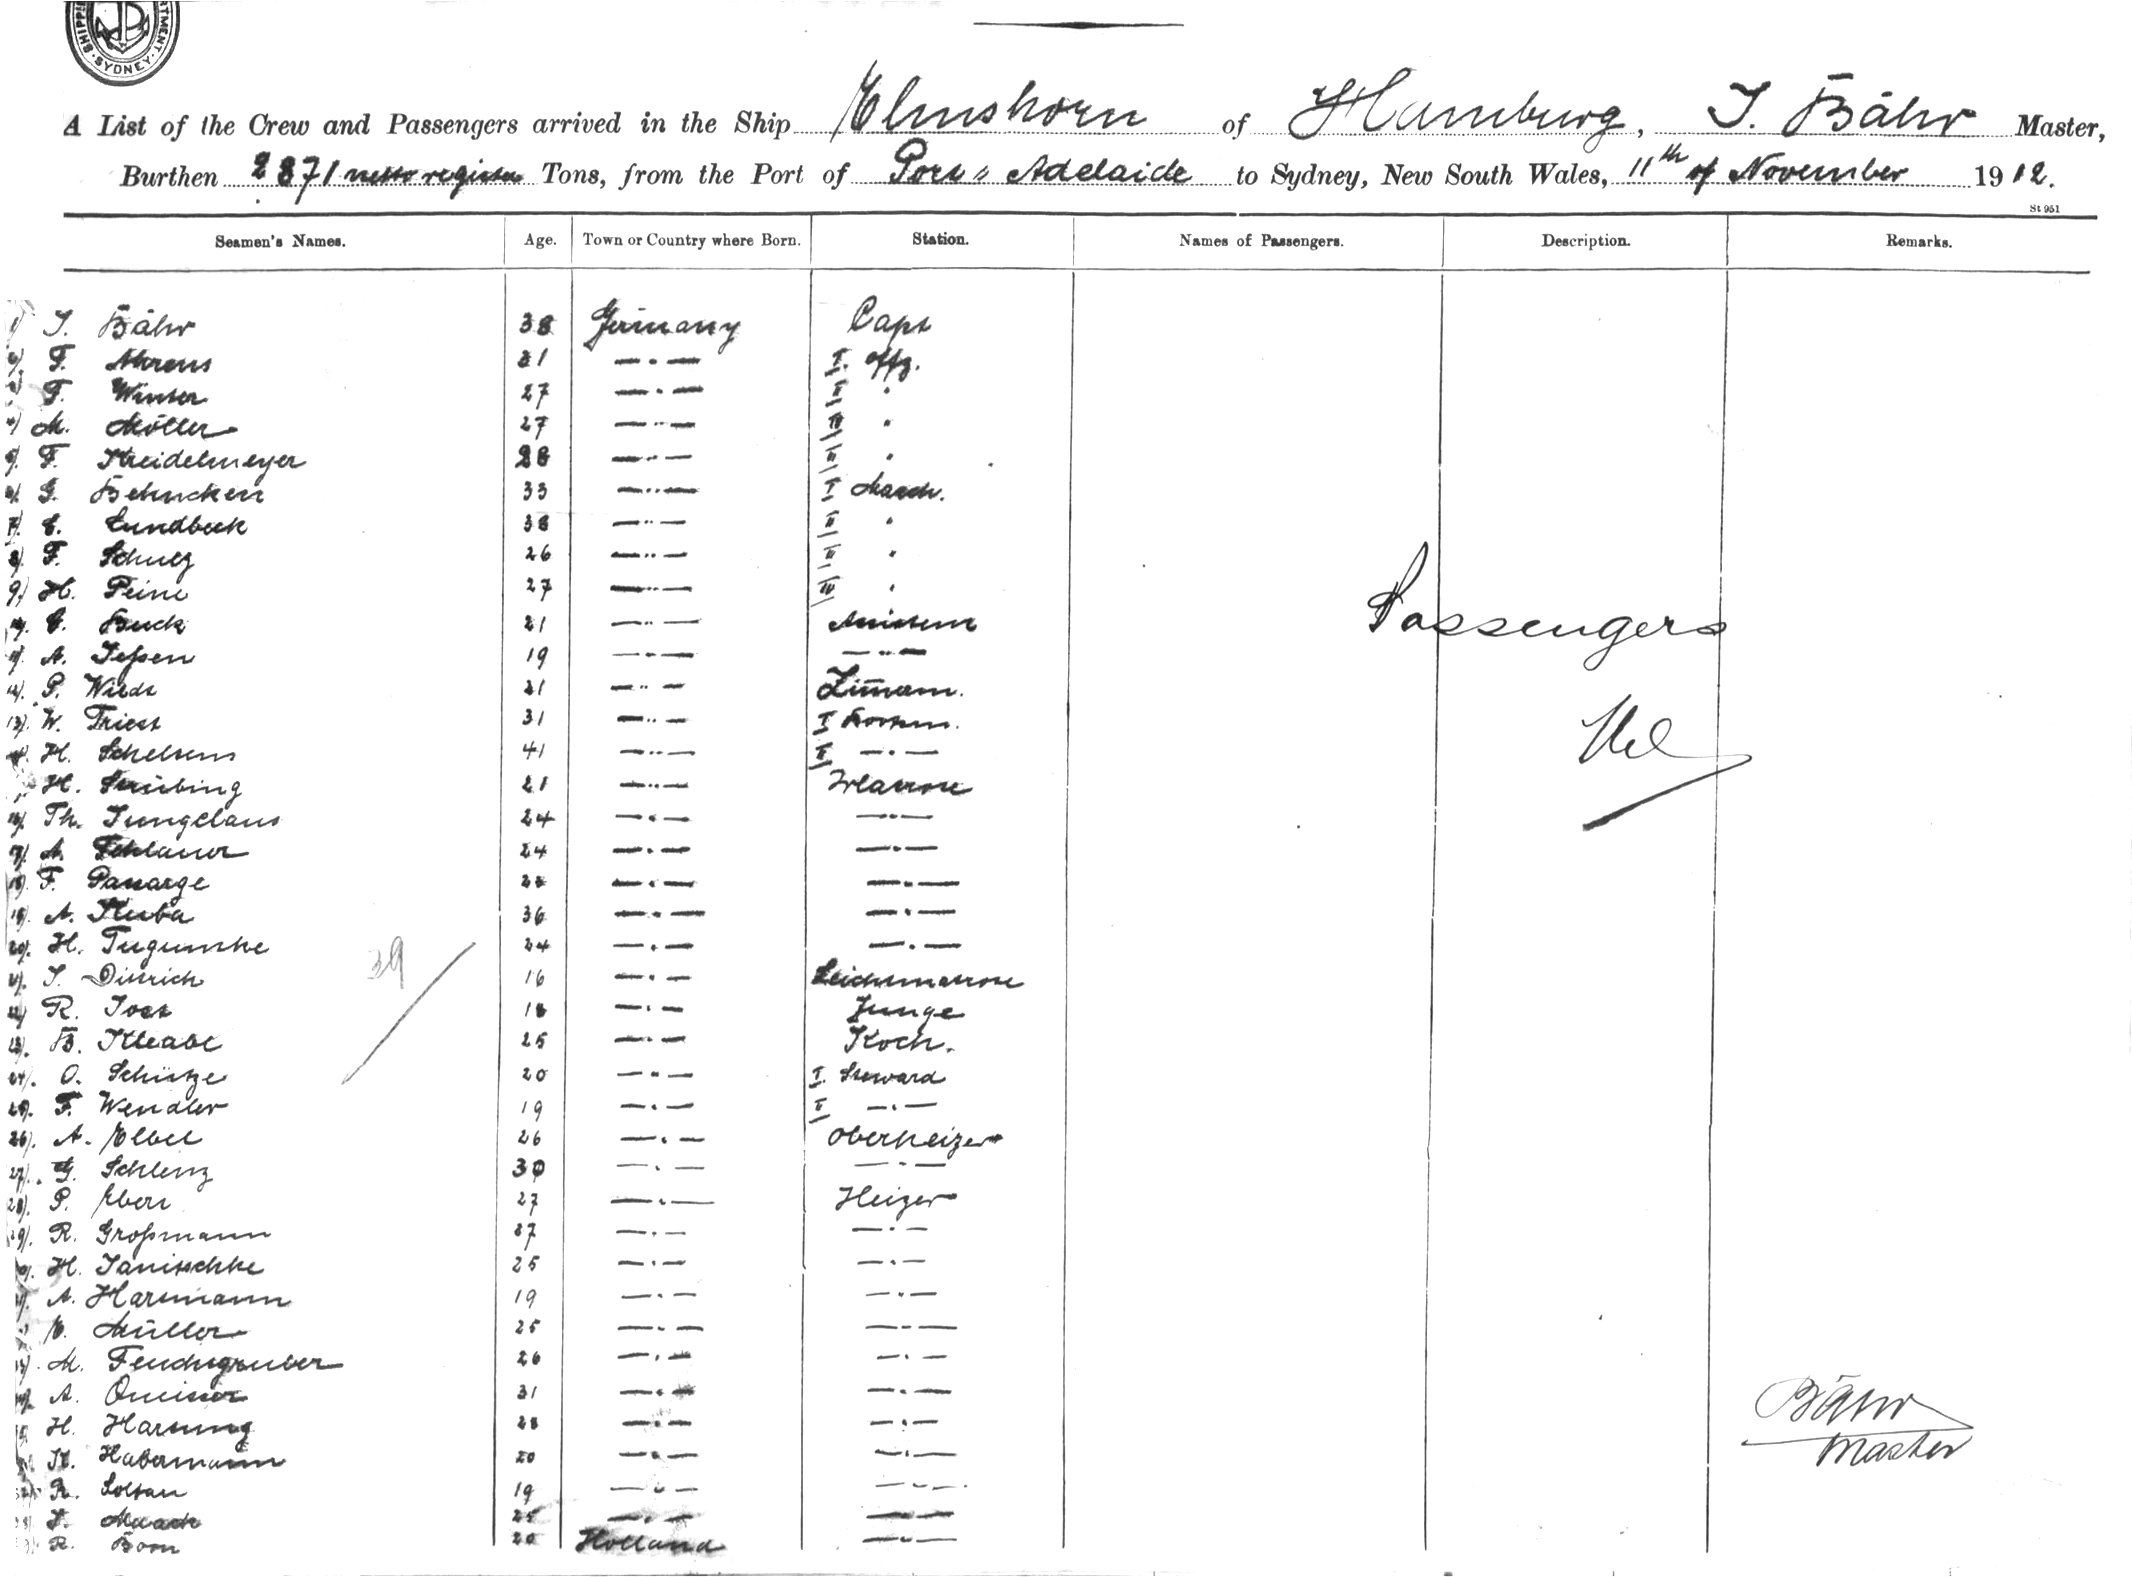 SHIPPING DEPARTMENT SYDNEY
A List of the Crew and Passengers arrived in the Ship Elmshorn of Hamburg, J. Bähr Master,
Burthen 2871 netto register Tons, from the Port of Port Adelaide to Sydney, New South Wales, 11th of November 1912.
St 951
Seamen's Names. Age. Town or Country where Born. Station. Names of Passengers. Description. Remarks.
1) J. Bähr 38 Germany Capt
2) F. Ahrens 31 —〃— I. Offz.
3) F. Winter 27 —〃— II 〃
4) M. Möller 27 —〃— III 〃
5) F. Kreidelmeyer 28 —〃— 〃
6) G. Behncken 33 —〃— I Masch.
7) E. Lundbeck 38 —〃— II 〃
8) F. Schulz 26 —〃— III 〃
9) H. Peine 27 —〃— IV 〃
10) E. Buck 21 —〃— Assistent
11) A. Jeßen 19 —〃— —〃—
Passengers
12) P. Wiedt 21 —〃— Zimmerm.
13) W. Triest 31 —〃— I Bootsm.
14) H. Scheltens 41 —〃— II —〃—
Nil
H. Stübing 21 —〃— Matrose
16) Th. Jungclaus 24 —〃— —〃—
17) A. 24 —〃— —〃—
18) F. Panarge —〃— —〃—
19) A. Kuba 36 —〃— —〃—
20) H. Tugumske 24 —〃— —〃—
39
21) J. Dittrich 16 —〃— Leichtmatrose
22) R. Jost 18 —〃— Junge
23) B. 25 —〃— Koch.
24) O. Schütze 20 —〃— I. Steward
25) F. Wendler 19 —〃— II —〃—
26) A. Elbel 26 —〃— Oberheizer
27) G. Schlenz 30 —〃— —〃—
28) P. Ebert 27 —〃— Heizer
29) R. Großmann 37 —〃— —〃—
30) H. Janitschke 25 —〃— —〃—
31) A. Hartmann 19 —〃— —〃—
E. Müller 25 —〃— —〃—
33) M. Feuchtgruber 26 —〃— —〃—
34) A. Queisser 31 —〃— —〃—
35) H. Hartung 28 —〃— —〃—
Bähr
Master
K. Habermann 20 —〃— —〃—
R. Soltau 19 —〃— —〃—
Maack 25 —〃— —〃—
R. Boon 20 Holland —〃—